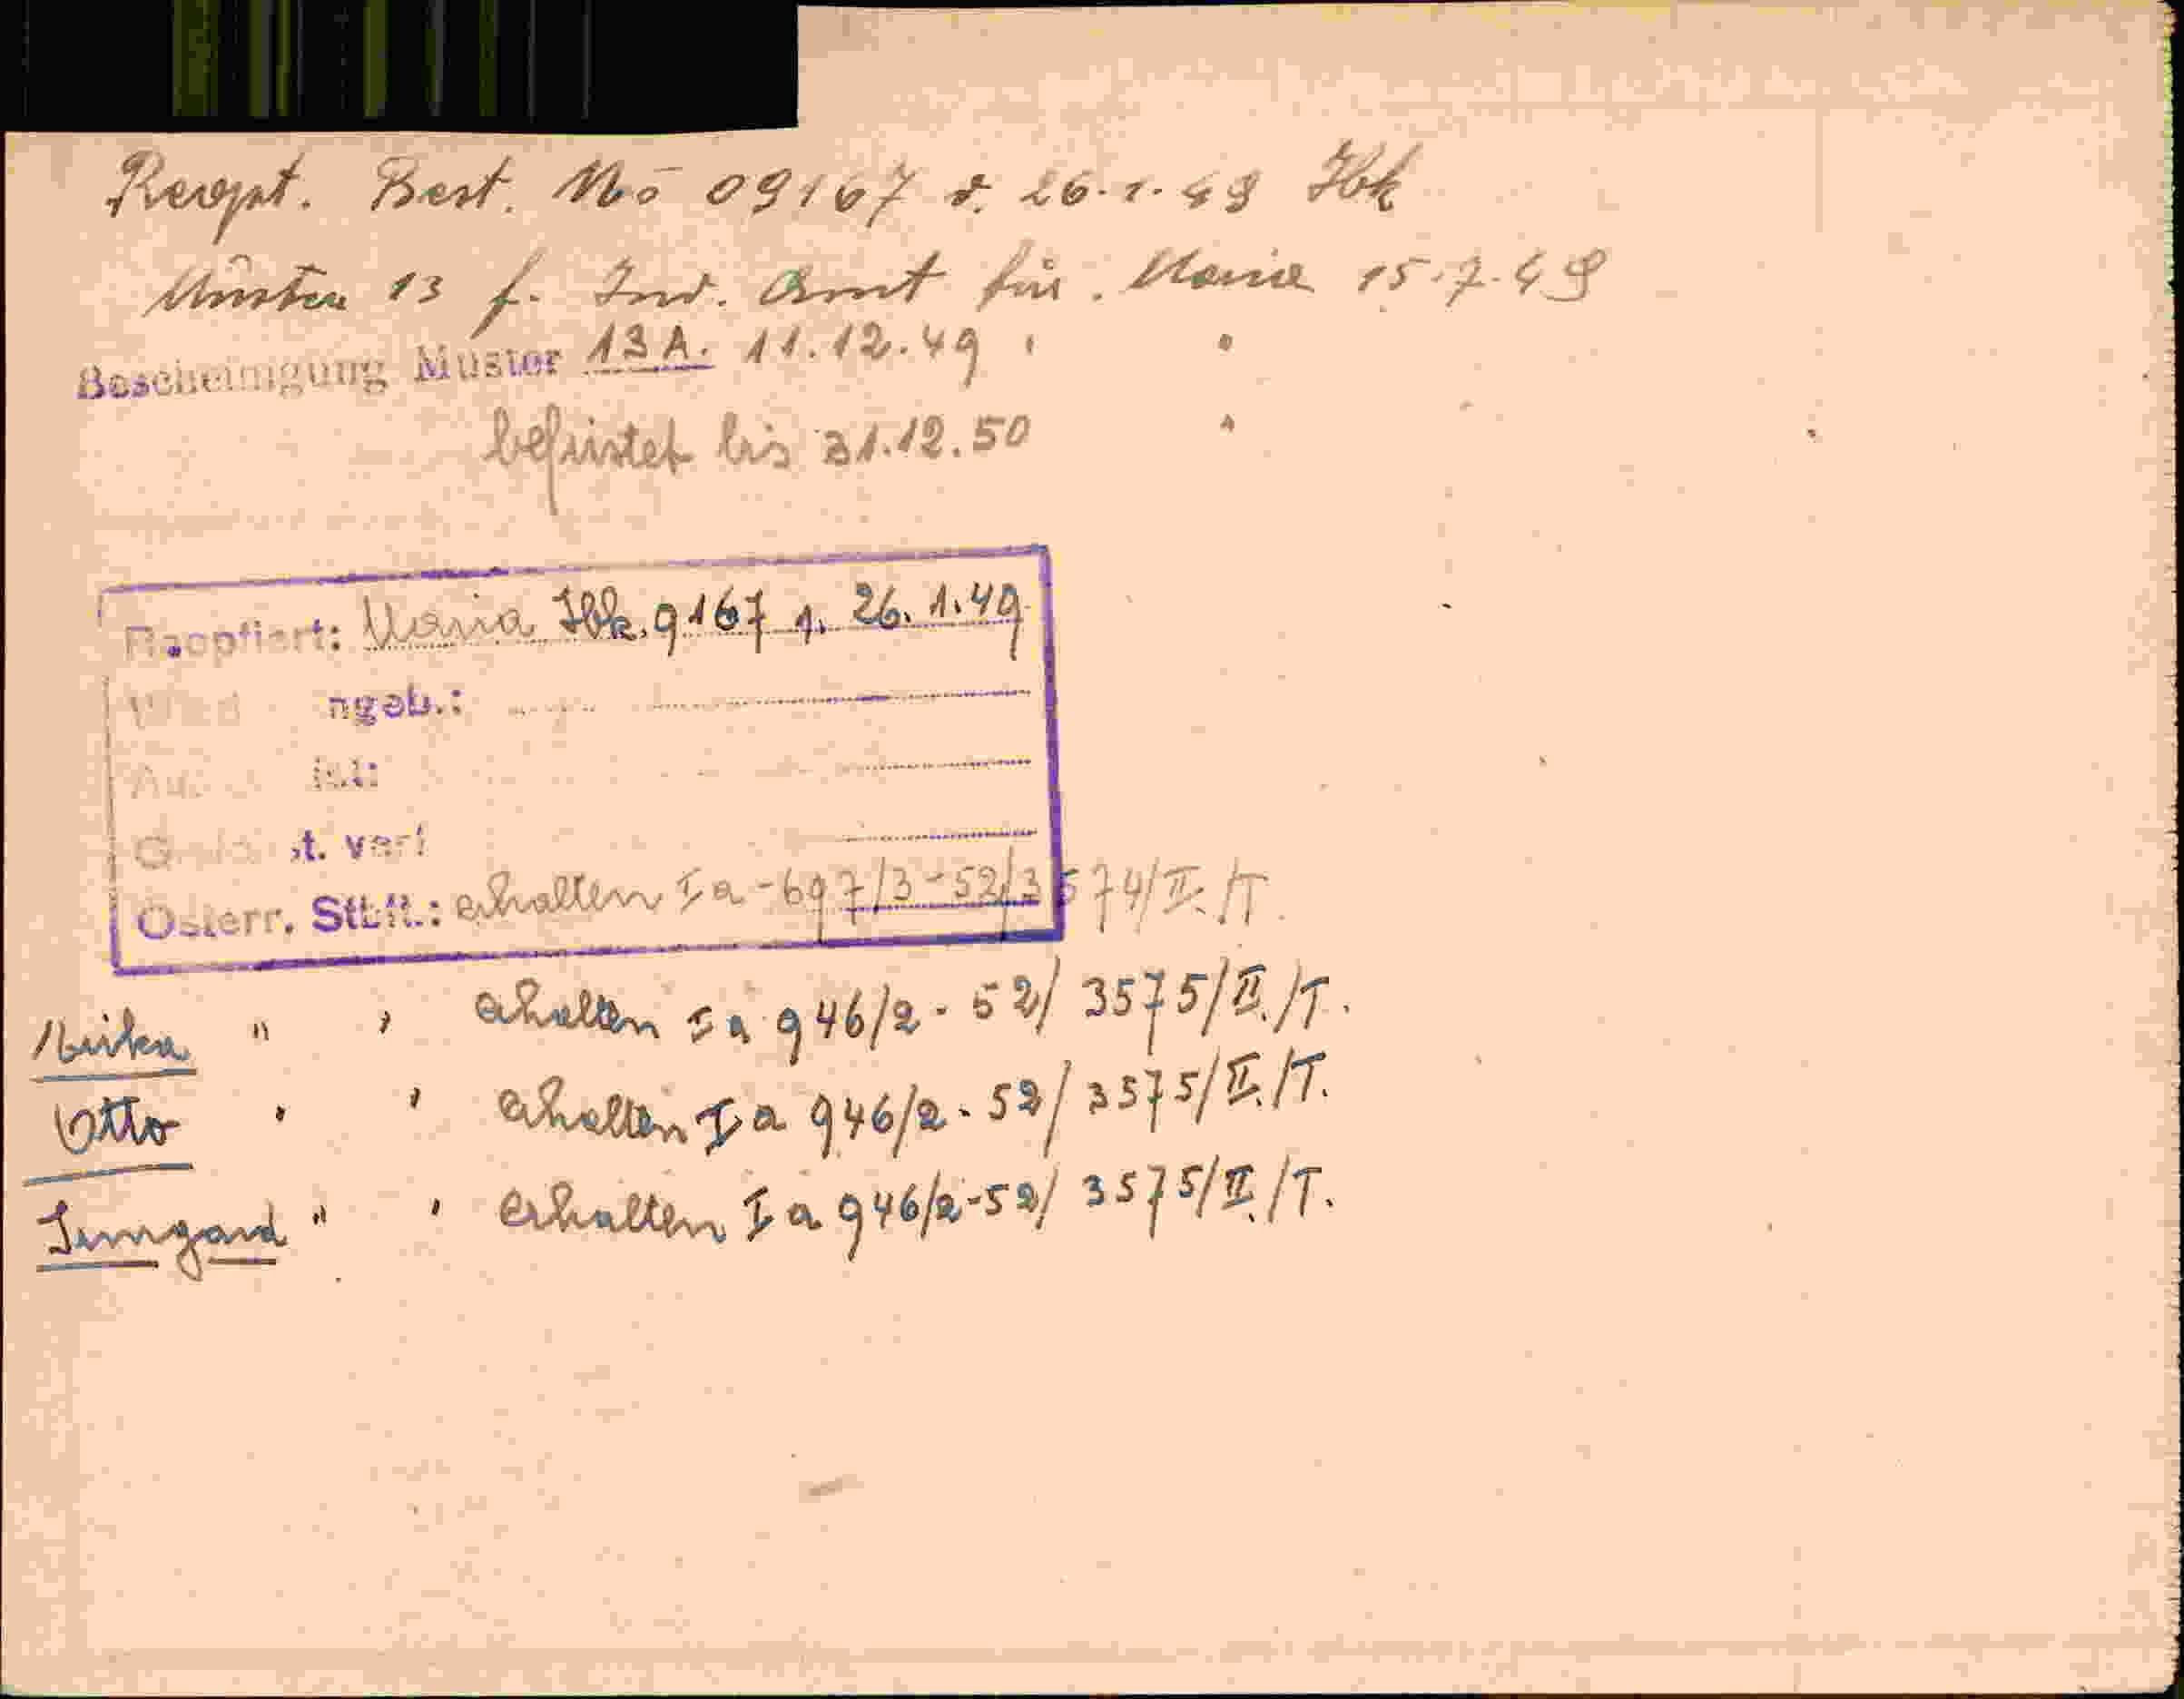 Reopt. Best. No 09167 v. 26.1.49 Ibk
Muster 13 f. Ind. Amt für. Maria 15.7.49
Bescheinigung Muster 13 A. 11.12.49
befristet bis 31.12.50
Reoptiert: Maria Ibk. 9167 v. 26.1.49
ngeb.:
t. verl
Österr. Stbft.: erhalten I a - 697/3-52/3574/II./T.
" " erhalten I a 946/2-52/3575/II./T.
Otto " " erhalten I a 946/2-52/3575/II./T.
Irmgard " " erhalten I a 946/2-52/3575/II./T.